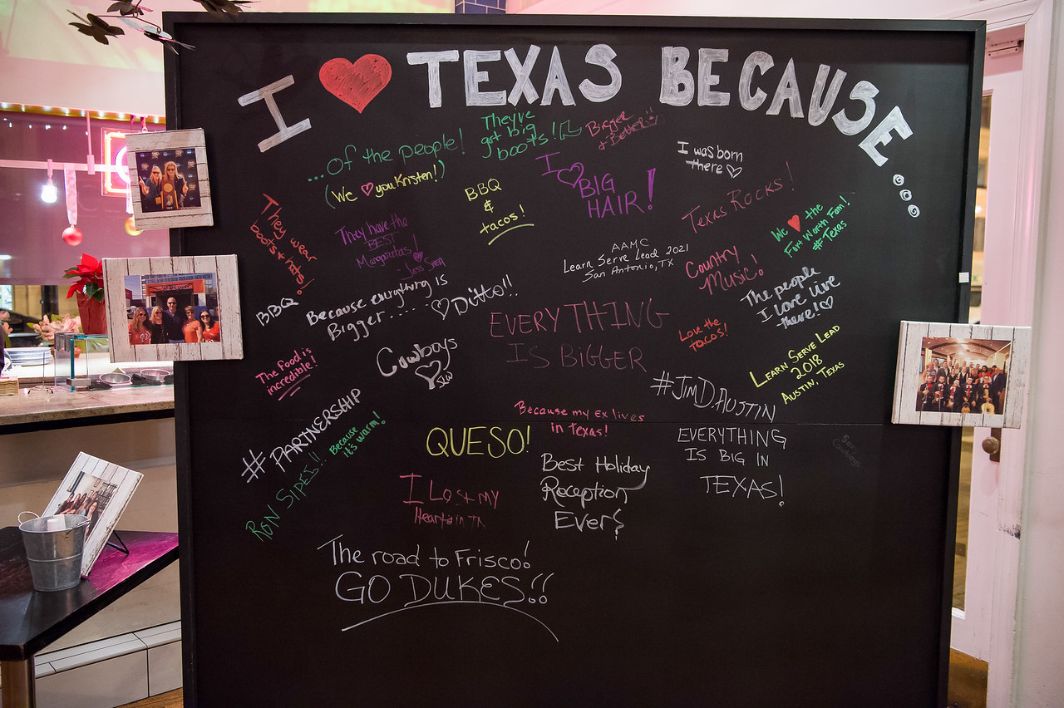 I ♥ TEXAS BECAUSE....
...of the people!
(We ♡ you Kristen!)
They've
got big
boots!
Bigger
& Better!!
I was born
there ♡
BBQ
&
tacos!
I ♡ BIG
HAIR!
Texas Rocks!
They wear
boots & hats!
They have the
BEST
Margaritas!
AAMC
Learn Serve Lead 2021
San Antonio, TX
We ♥ the
Fort Worth Fam!
#Texas
Country
Music!
The people
I love live
there! ♡
BBQ
Because everything is
Bigger.....
♡ Ditto!!
EVERYTHING
IS BIGGER
Love the
tacos!
The food is
incredible!
Cowboys
♡ SLW
Learn Serve Lead
2018
Austin, Texas
#JIM D. AUSTIN
# PARTNERSHIP
Because
it's warm!
Because my ex lives
in Texas!
QUESO!
EVERYTHING
IS BIG IN
TEXAS!
RON SIPES!!
I Lost my
Heart in TX
Best Holiday
Reception
Ever!
The road to Frisco!
GO DUKES!!